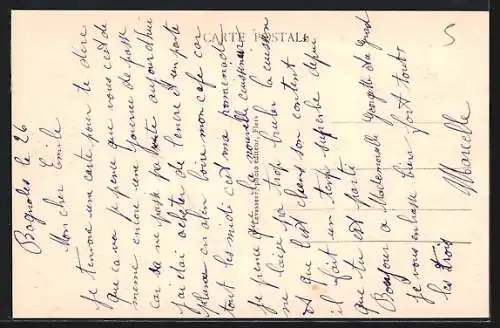 CARTE POSTALE
Bagnoles le 26
Mon cher Emile
je t'envoie une carte pour te dire
que ca va je pense que vous c'est de
meme encore une journée de passe
car sa ne passe pas vite aujourd'hui
j'ai été acheter de l'encre j'en porte
plume en alen boire mon cafe car
tout les midi c'est ma promenade
je pense que la nouvelle cuisinière
ne laise pas trop bruler la cuisson
et que l'est chens son contents
il fait un temps superbe depui
que tu est partie
Bonjour a Mademoiselle Georgette sa Grand
je vous embrasse bien fort toutes
les trois
Marcelle